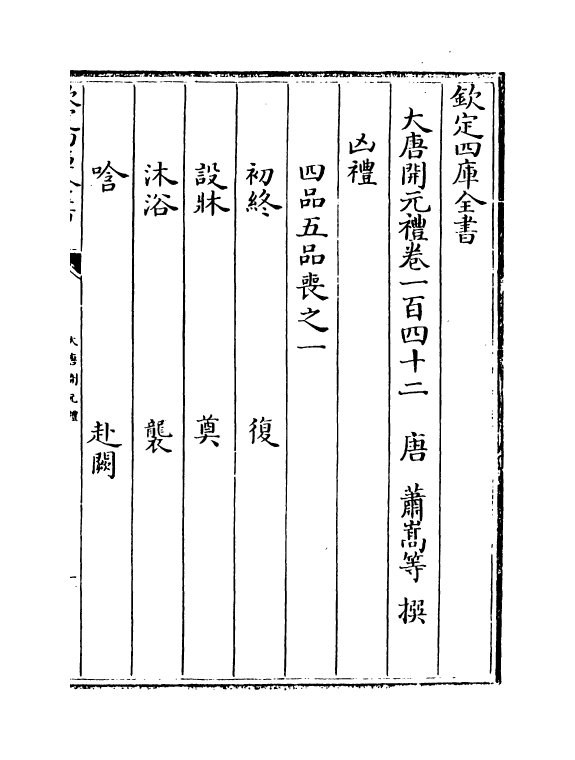 欽定四庫全書
大唐開元禮卷一百四十二 唐 蕭嵩等 撰
凶禮
四品五品喪之一
初終 復
設牀 奠
沐浴 襲
唅 赴闕
大唐開元禮
一